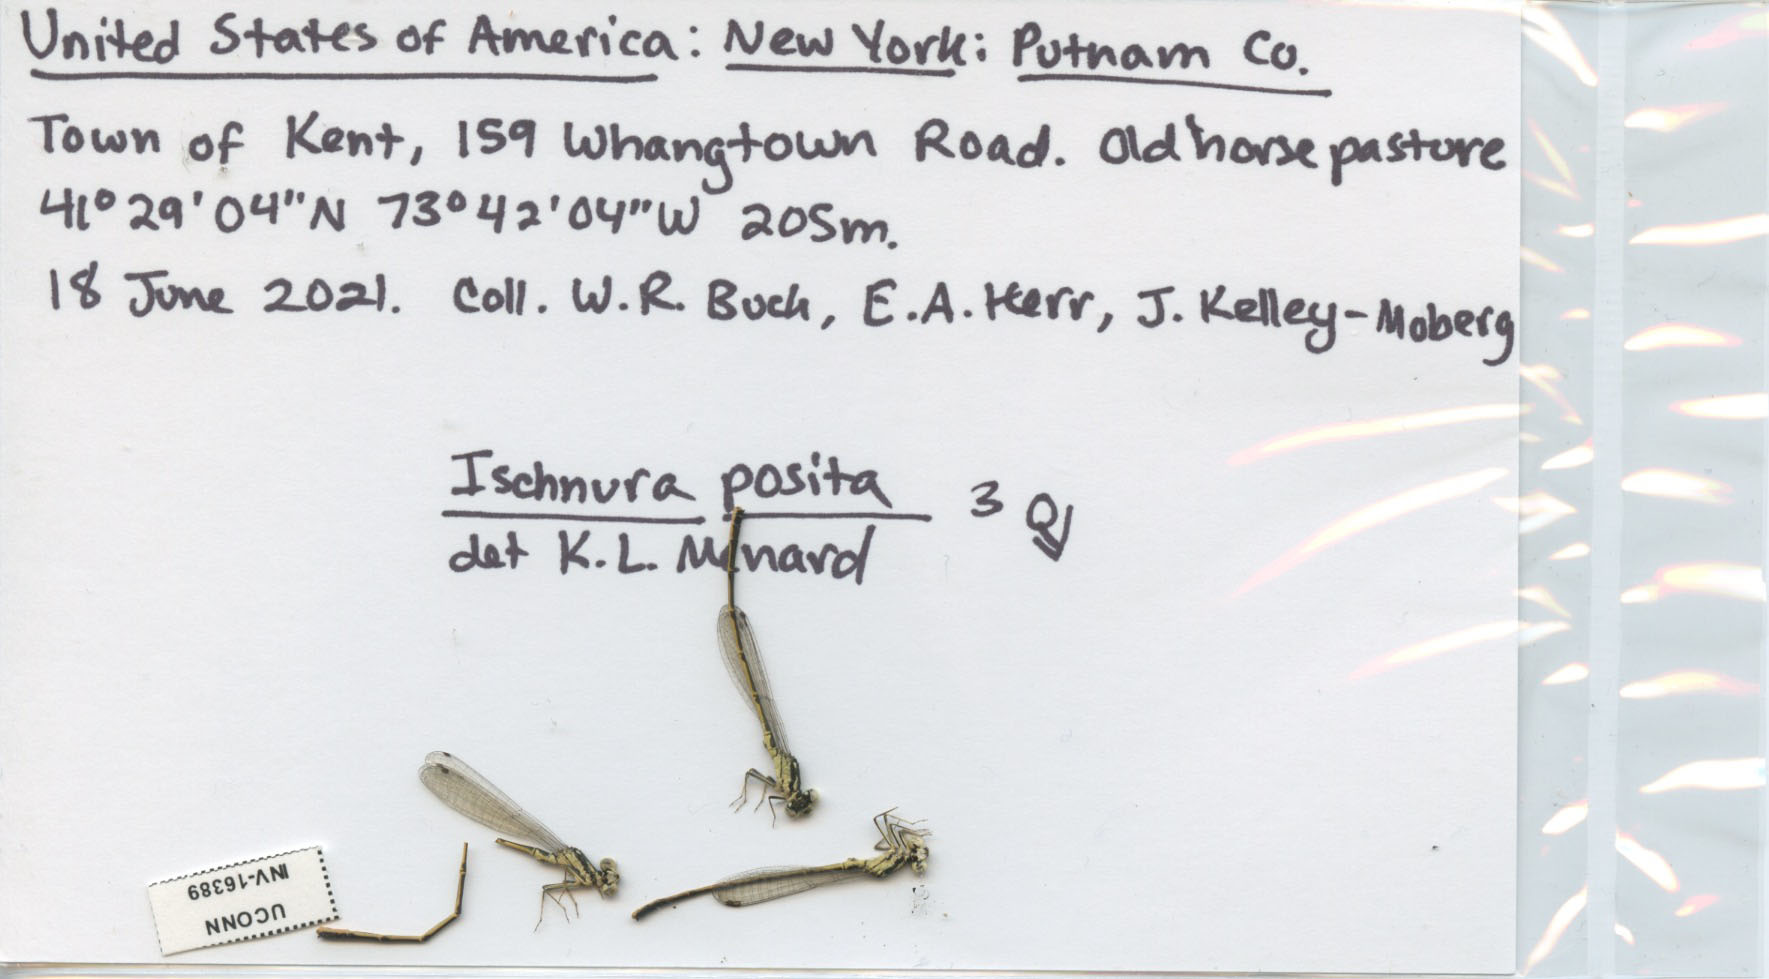 United States of America: New York: Putnam Co.
Town of Kent, 159 Whangtown Road. Old horse pasture
41° 29' 04" N 73° 42' 04" W 205m.
18 June 2021. Coll. W.R. Buck, E.A. Herr, J. Kelley-Moberg
Ischnura posita 3
det K.L. Menard
UCONN
INV-16389